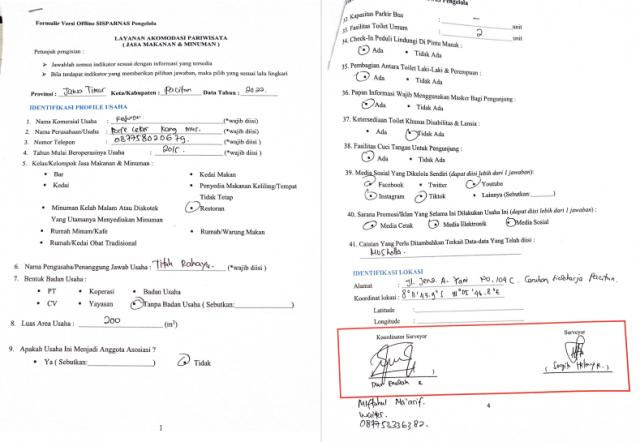 Formulir Versi Offline SISPARNAS Pengelola
LAYANAN AKOMODASI PARIWISATA
( JASA MAKANAN & MINUMAN )
Petunjuk pengisian :
Jawablah semua indikator sesuai dengan informasi yang tersedia
Bila terdapat indikator yang memberikan pilihan jawaban, maka pilih yang sesuai lalu lingkari
Provinsi : Jawa Timur Kota/Kabupaten : Pacitan Data Tahun : 2022
IDENTIFIKASI PROFILE USAHA
1. Nama Komersial Usaha : (*wajib diisi)
2. Nama Perusahaan/Usaha : Kang (*wajib diisi )
3. Nomor Telepon : 087758020679 (*wajib diisi )
4. Tahun Mulai Beroperasinya Usaha : 2015 (*wajib diisi )
5. Kelas/Kelompok Jasa Makanan & Minuman :
Bar
Kedai Makan
Kedai
Penyedia Makanan Keliling/Tempat Tidak Tetap
Minuman Kelab Malam Atau Diskotek Yang Utamanya Menyediakan Minuman
Restoran
Rumah Minum/Kafe
Rumah/Warung Makan
Rumah/Kedai Obat Tradisional
6. Nama Pengusaha/Penanggung Jawab Usaha : Titah Rahayu (*wajib diisi )
7. Bentuk Badan Usaha :
PT Koperasi Badan Usaha
CV Yayasan Tanpa Badan Usaha ( Sebutkan: )
8. Luas Area Usaha : 200 (m²)
9. Apakah Usaha Ini Menjadi Anggota Asosiasi ?
Ya ( Sebutkan: ) Tidak
1
Pengelola
32. Kapasitas Parkir Bus : - unit
33. Fasilitas Toilet Umum : 2 unit
34. Check-In Peduli Lindungi Di Pintu Masuk :
Ada Tidak Ada
35. Pembagian Antara Toilet Laki-Laki & Perempuan :
Ada Tidak Ada
36. Papan Informasi Wajib Menggunakan Masker Bagi Pengunjung :
Ada Tidak Ada
37. Ketersediaan Toilet Khusus Disabilitas & Lansia :
Ada Tidak Ada
38. Fasilitas Cuci Tangan Untuk Pengunjung :
Ada Tidak Ada
39. Media Sosial Yang Dikelola Sendiri (dapat diisi lebih dari 1 jawaban) :
Facebook Twitter Youtube
Instagram Tiktok Lainnya (Sebutkan: )
40. Sarana Promosi/Iklan Yang Selama Ini Dilakukan Usaha Ini (dapat diisi lebih dari 1 jawaban) :
Media Cetak Media Elektronik Media Sosial
41. Catatan Yang Perlu Ditambahkan Terkait Data-data Yang Telah diisi :
Musholla.
IDENTIFIKASI LOKASI
Alamat : Jl. Jend. A. Yani No. 104 C. Pacitan.
Koordinat lokasi :
Latitude :
Longitude :
Koordinator Surveyor
Surveyor
Miftahul Ma'arif.
4